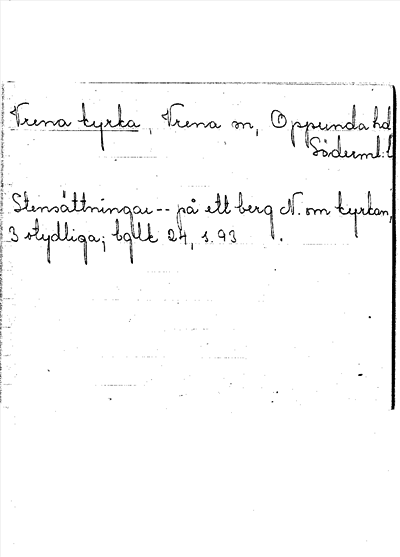 Vrena kyrka, Vrena sn, Oppunda hd
Söderml. l
Stensättningar -- på ett berg N. om kyrkan,
3 otydliga; bglk 24, s. 93.